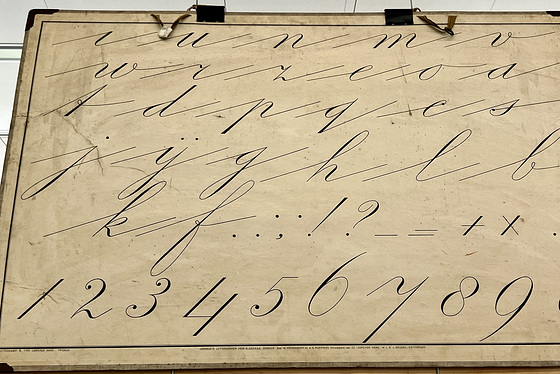 i u n m v
w r z e o a
t d p q c s
j ij g h l b
k f . , ; : ! ? _ = + x .
1 2 3 4 5 6 7 8 9